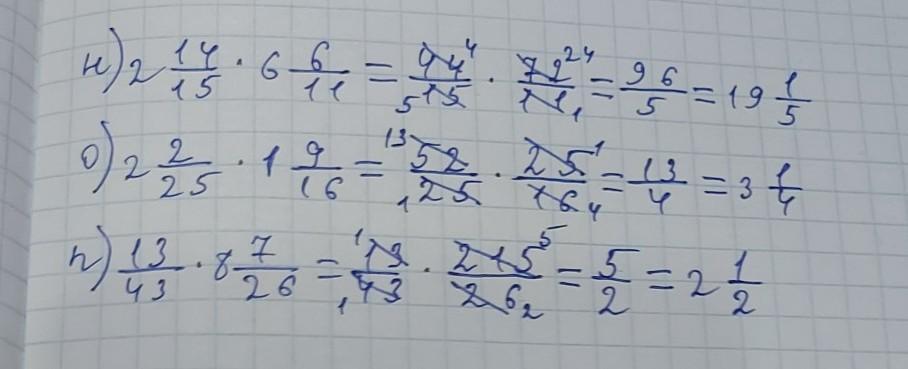 н) 2 14/15 · 6 6/11 = 44⁴/₅15 · 72²⁴/11₁ = 96/5 = 19 1/5
о) 2 2/25 · 1 9/16 = ¹³52/₁25 · 25¹/16₄ = 13/4 = 3 1/4
п) 13/43 · 8 7/26 = ¹13/₁43 · 215⁵/26₂ = 5/2 = 2 1/2